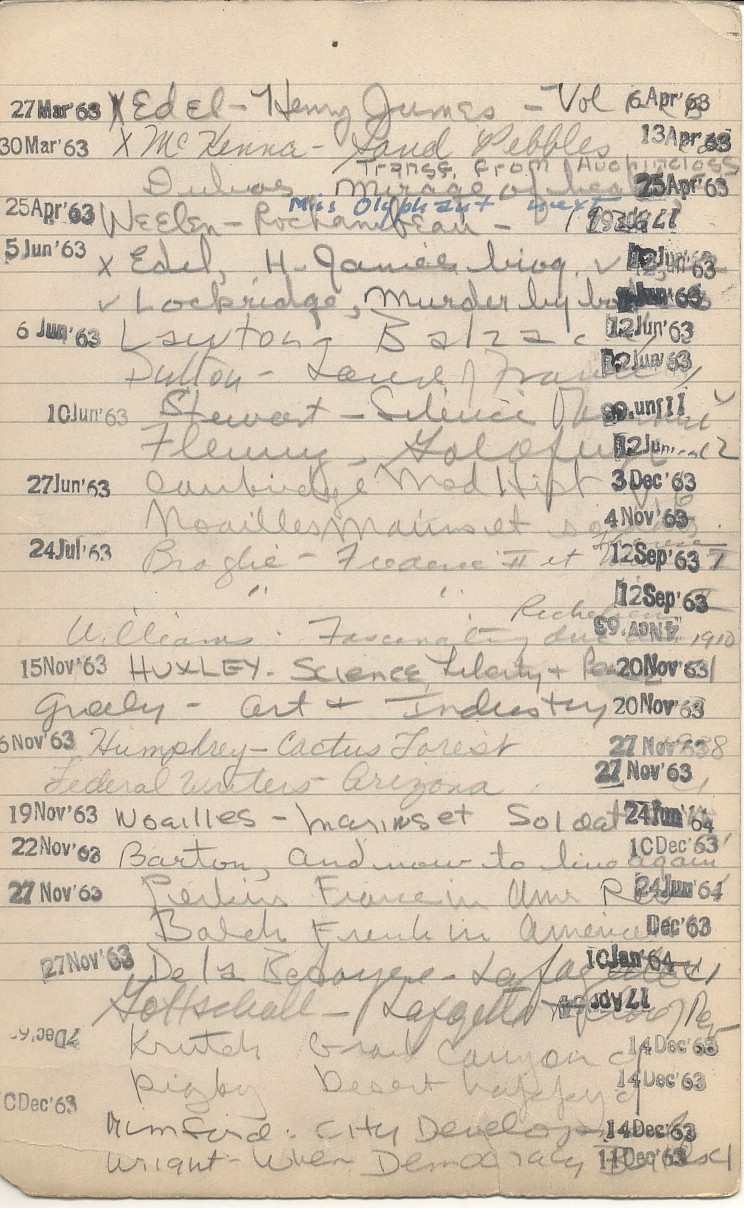 27 Mar '63 X Edel - Henry James - Vol 6 Apr '63
30 Mar '63 X McKenna - Sand Pebbles 13 Apr '63
Transf. from Auchincloss
Dubos Mirage of hea 25 Apr '63
Miss Olyphant next
25 Apr '63 Weelen - Rochambeau -
5 Jun '63 x Edel, H. James biog. ✓ Jun '63
✓ Lockridge, Murder by Jun '63
6 Jun '63 Layton, Balzac 12 Jun '63
Dutton - Land of France 12 Jun '63
10 Jun '63 Stewart - Silence
Fleming - Goldfinger 12 Jun
27 Jun '63 Cambridge Mod Hist 3 Dec '63
Noailles Marins et 4 Nov '63
24 Jul '63 Broglie - Frederic II et 12 Sep '63 I
" " 12 Sep '63 II
Williams. Fascinating duc 1910
15 Nov '63 HUXLEY. Science, Liberty + Peace 20 Nov '63
Greely - Art + Industry 20 Nov '63
6 Nov '63 Humphrey - Cactus Forest 27 Nov '63
Federal Writers - Arizona 27 Nov '63
19 Nov '63 Noailles - Marins et Soldat 24 Jun '64
22 Nov '63 Barton, And now to live again 10 Dec '63
27 Nov '63 Perkins France in Amer Rev 24 Jun '64
Balch French in America Dec '63
27 Nov '63 De la Bedoyere - Lafayette 10 Jan '64
Gottschalk - Lafayette
7 Dec '63 Krutch Grand Canyon 14 Dec '63
Desert 14 Dec '63
10 Dec '63
Mumford. City Develop 14 Dec '63
Wright - When Democracy Builds 11 Dec '63